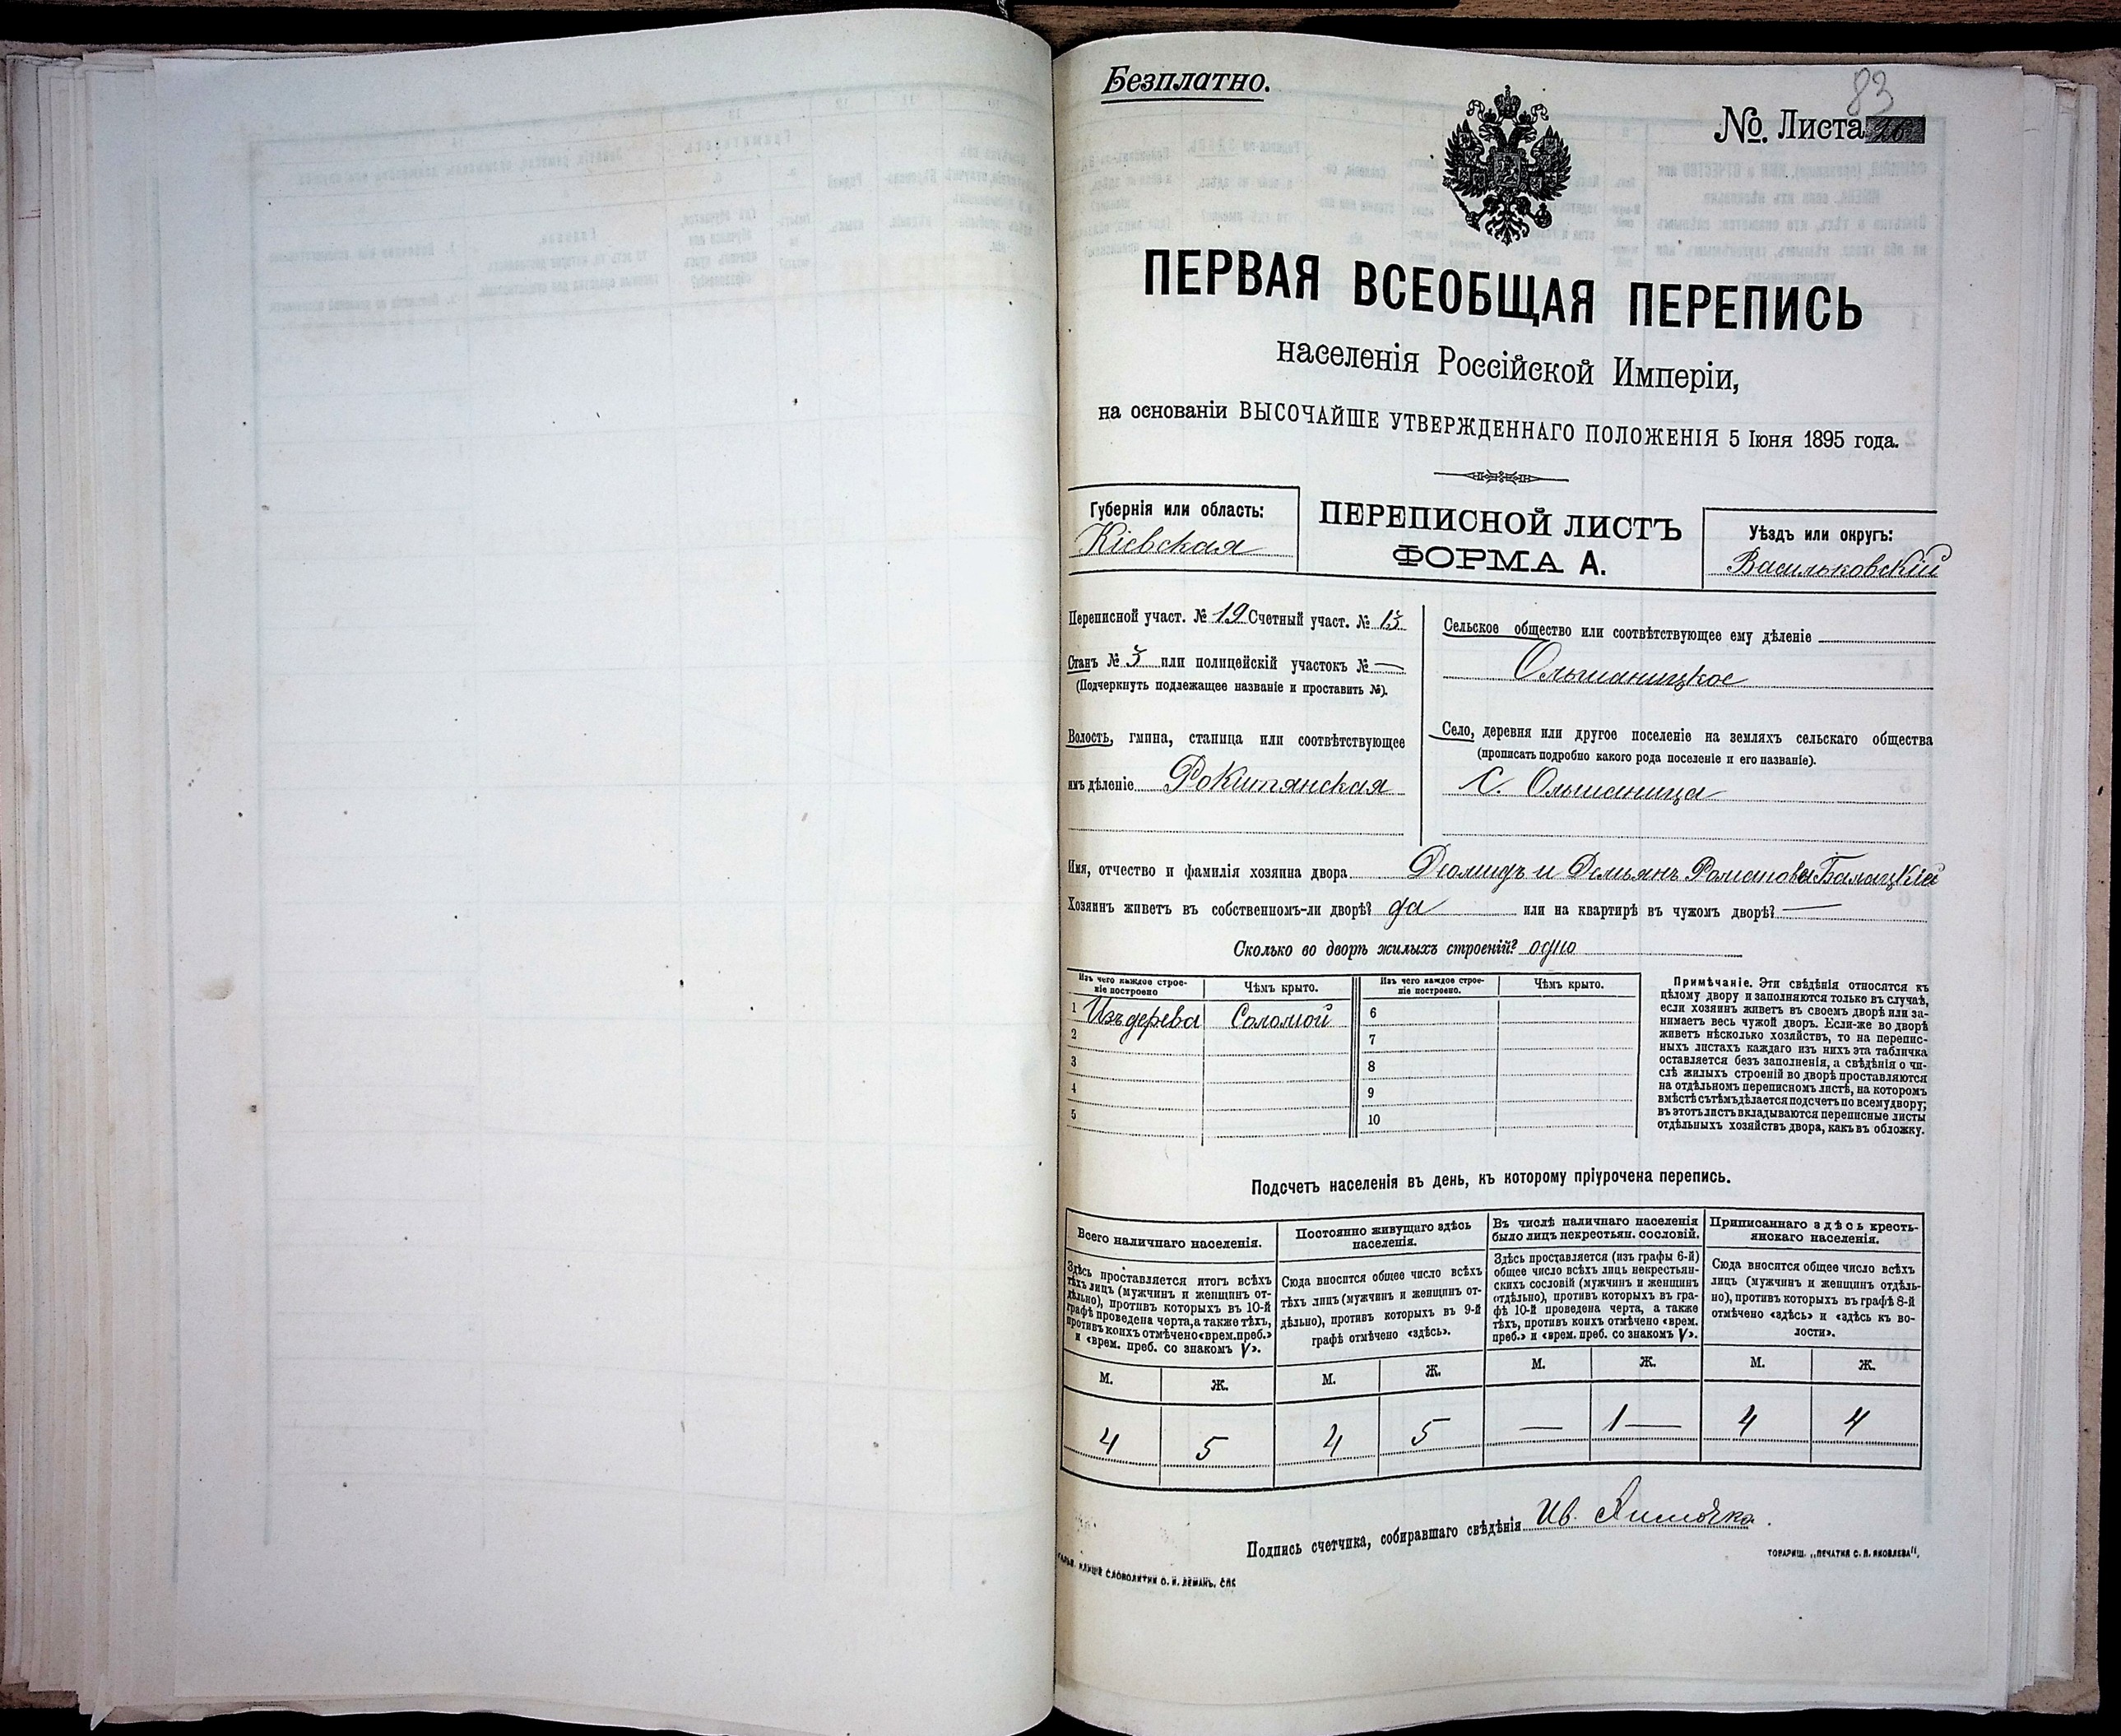 Безплатно.
83
№. Листа 26
ПЕРВАЯ ВСЕОБЩАЯ ПЕРЕПИСЬ
населенія Россійской Имперіи,
на основаніи ВЫСОЧАЙШЕ УТВЕРЖДЕННАГО ПОЛОЖЕНІЯ 5 Іюня 1895 года.
Губернія или область:
Кіевская
ПЕРЕПИСНОЙ ЛИСТЪ
ФОРМА А.
Уѣздъ или округъ:
Васильковскій
Переписной участ. № 19 Счетный участ. № 13
Станъ № 3 или полицейскій участокъ № —
(Подчеркнуть подлежащее названіе и проставить №).
Волость, гмина, станица или соотвѣтствующее
имъ дѣленіе Рокитянская
Сельское общество или соотвѣтствующее ему дѣленіе
Ольшаницкое
Село, деревня или другое поселеніе на земляхъ сельскаго общества
(прописать подробно какого рода поселеніе и его названіе).
С. Ольшаница
Имя, отчество и фамилія хозяина двора Діомидъ и Демьянъ Романовы
Хозяинъ живетъ въ собственномъ-ли дворѣ? да или на квартирѣ въ чужомъ дворѣ? —
Сколько во дворѣ жилыхъ строеній? одно
Изъ чего каждое строе-
ніе построено
Чѣмъ крыто.
Изъ чего каждое строе-
ніе построено.
Чѣмъ крыто.
1 Изъ дерева Соломой 6
2 7
3 8
4 9
5 10
Примѣчаніе. Эти свѣдѣнія относятся къ
цѣлому двору и заполняются только въ случаѣ,
если хозяинъ живетъ въ своемъ дворѣ или за-
нимаетъ весь чужой дворъ. Если-же во дворѣ
живетъ нѣсколько хозяйствъ, то на перепис-
ныхъ листахъ каждаго изъ нихъ эта табличка
оставляется безъ заполненія, а свѣдѣнія о чи-
слѣ жилыхъ строеній во дворѣ проставляются
на отдѣльномъ переписномъ листѣ, на которомъ
вмѣстѣ съ тѣмъ дѣлается подсчетъ по всему двору;
въ этотъ листъ вкладываются переписные листы
отдѣльныхъ хозяйствъ двора, какъ въ обложку.
Подсчетъ населенія въ день, къ которому пріурочена перепись.
Всего наличнаго населенія.
Здѣсь проставляется итогъ всѣхъ
тѣхъ лицъ (мужчинъ и женщинъ от-
дѣльно), противъ которыхъ въ 10-й
графѣ проведена черта, а также тѣхъ,
противъ коихъ отмѣчено «врем. преб.»
и «врем. преб. со знакомъ V».
Постоянно живущаго здѣсь
населенія.
Сюда вносится общее число всѣхъ
тѣхъ лицъ (мужчинъ и женщинъ от-
дѣльно), противъ которыхъ въ 9-й
графѣ отмѣчено «здѣсь».
Въ числѣ наличнаго населенія
было лицъ некрестьян. сословій.
Здѣсь проставляется (изъ графы 6-й)
общее число всѣхъ лицъ некрестьян-
скихъ сословій (мужчинъ и женщинъ
отдѣльно), противъ которыхъ въ гра-
фѣ 10-й проведена черта, а также
тѣхъ, противъ коихъ отмѣчено «врем.
преб.» и «врем. преб. со знакомъ V».
Приписаннаго здѣсь кресть-
янскаго населенія.
Сюда вносится общее число всѣхъ
лицъ (мужчинъ и женщинъ отдѣль-
но), противъ которыхъ въ графѣ 8-й
отмѣчено «здѣсь» и «здѣсь къ во-
лости».
М. Ж. М. Ж. М. Ж. М. Ж.
4 5 4 5 — 1— 4 4
Подпись счетчика, собиравшаго свѣдѣнія Ив.
СЛОВОЛИТНИ О. И. ЛЕМАНЪ, СПБ
ТОВАРИЩ. „ПЕЧАТНЯ С. П. ЯКОВЛЕВА",